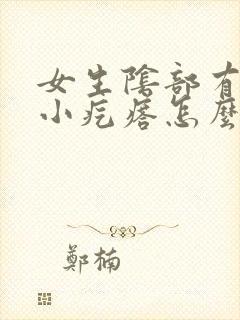 女生陰部有
小疙瘩怎麼
鄭楠